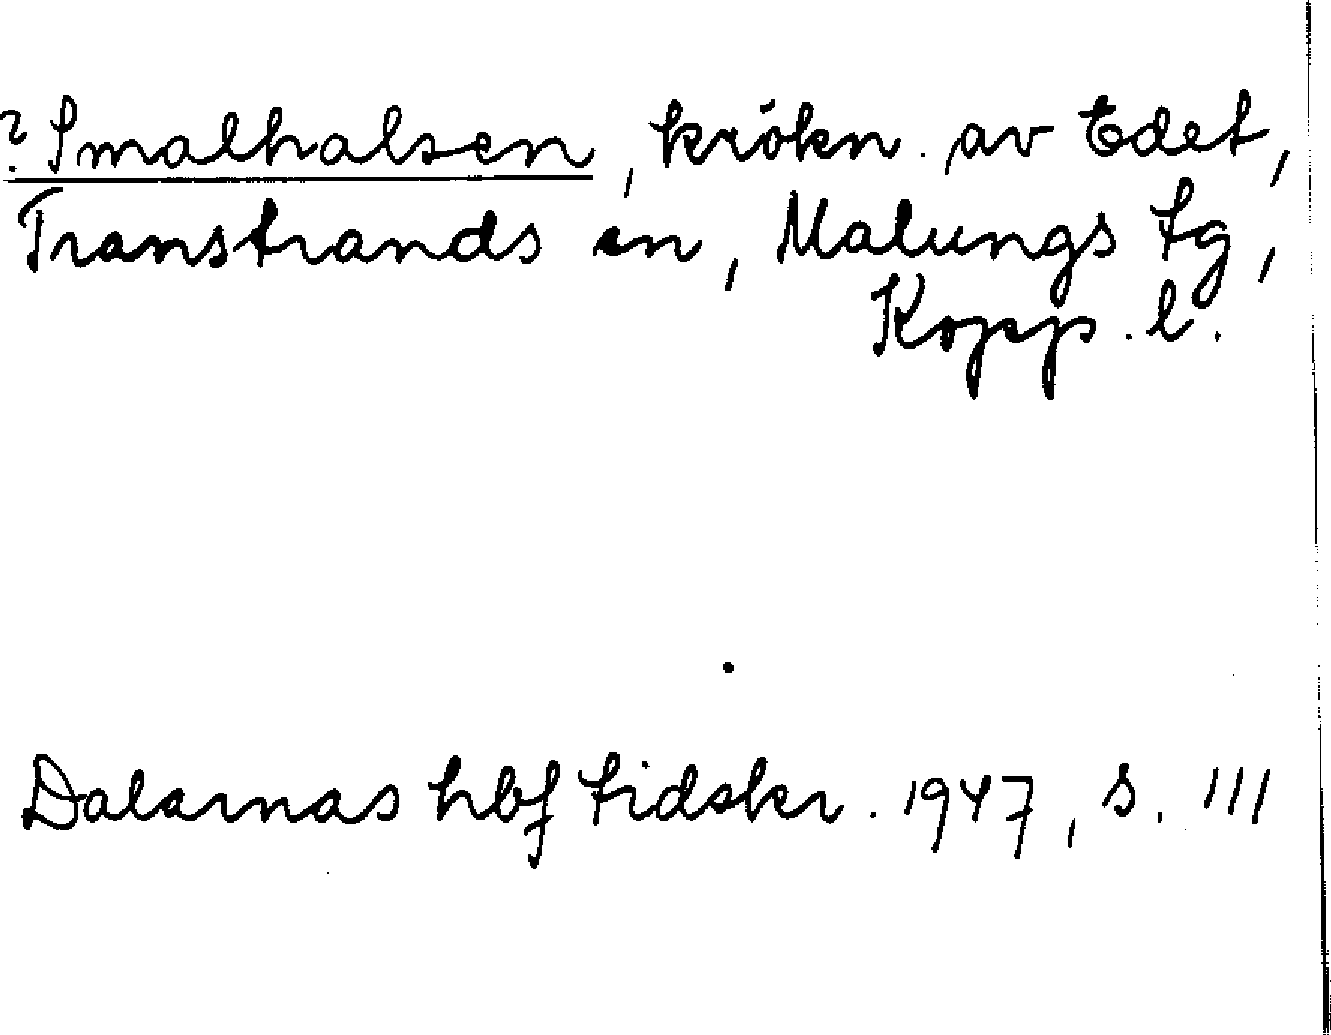 ? Smalhalsen, krökn. av Edet,
Transtrands sn, Malungs tg,
Kopp. l.
Dalarnas hbf tidskr. 1947, s. 111